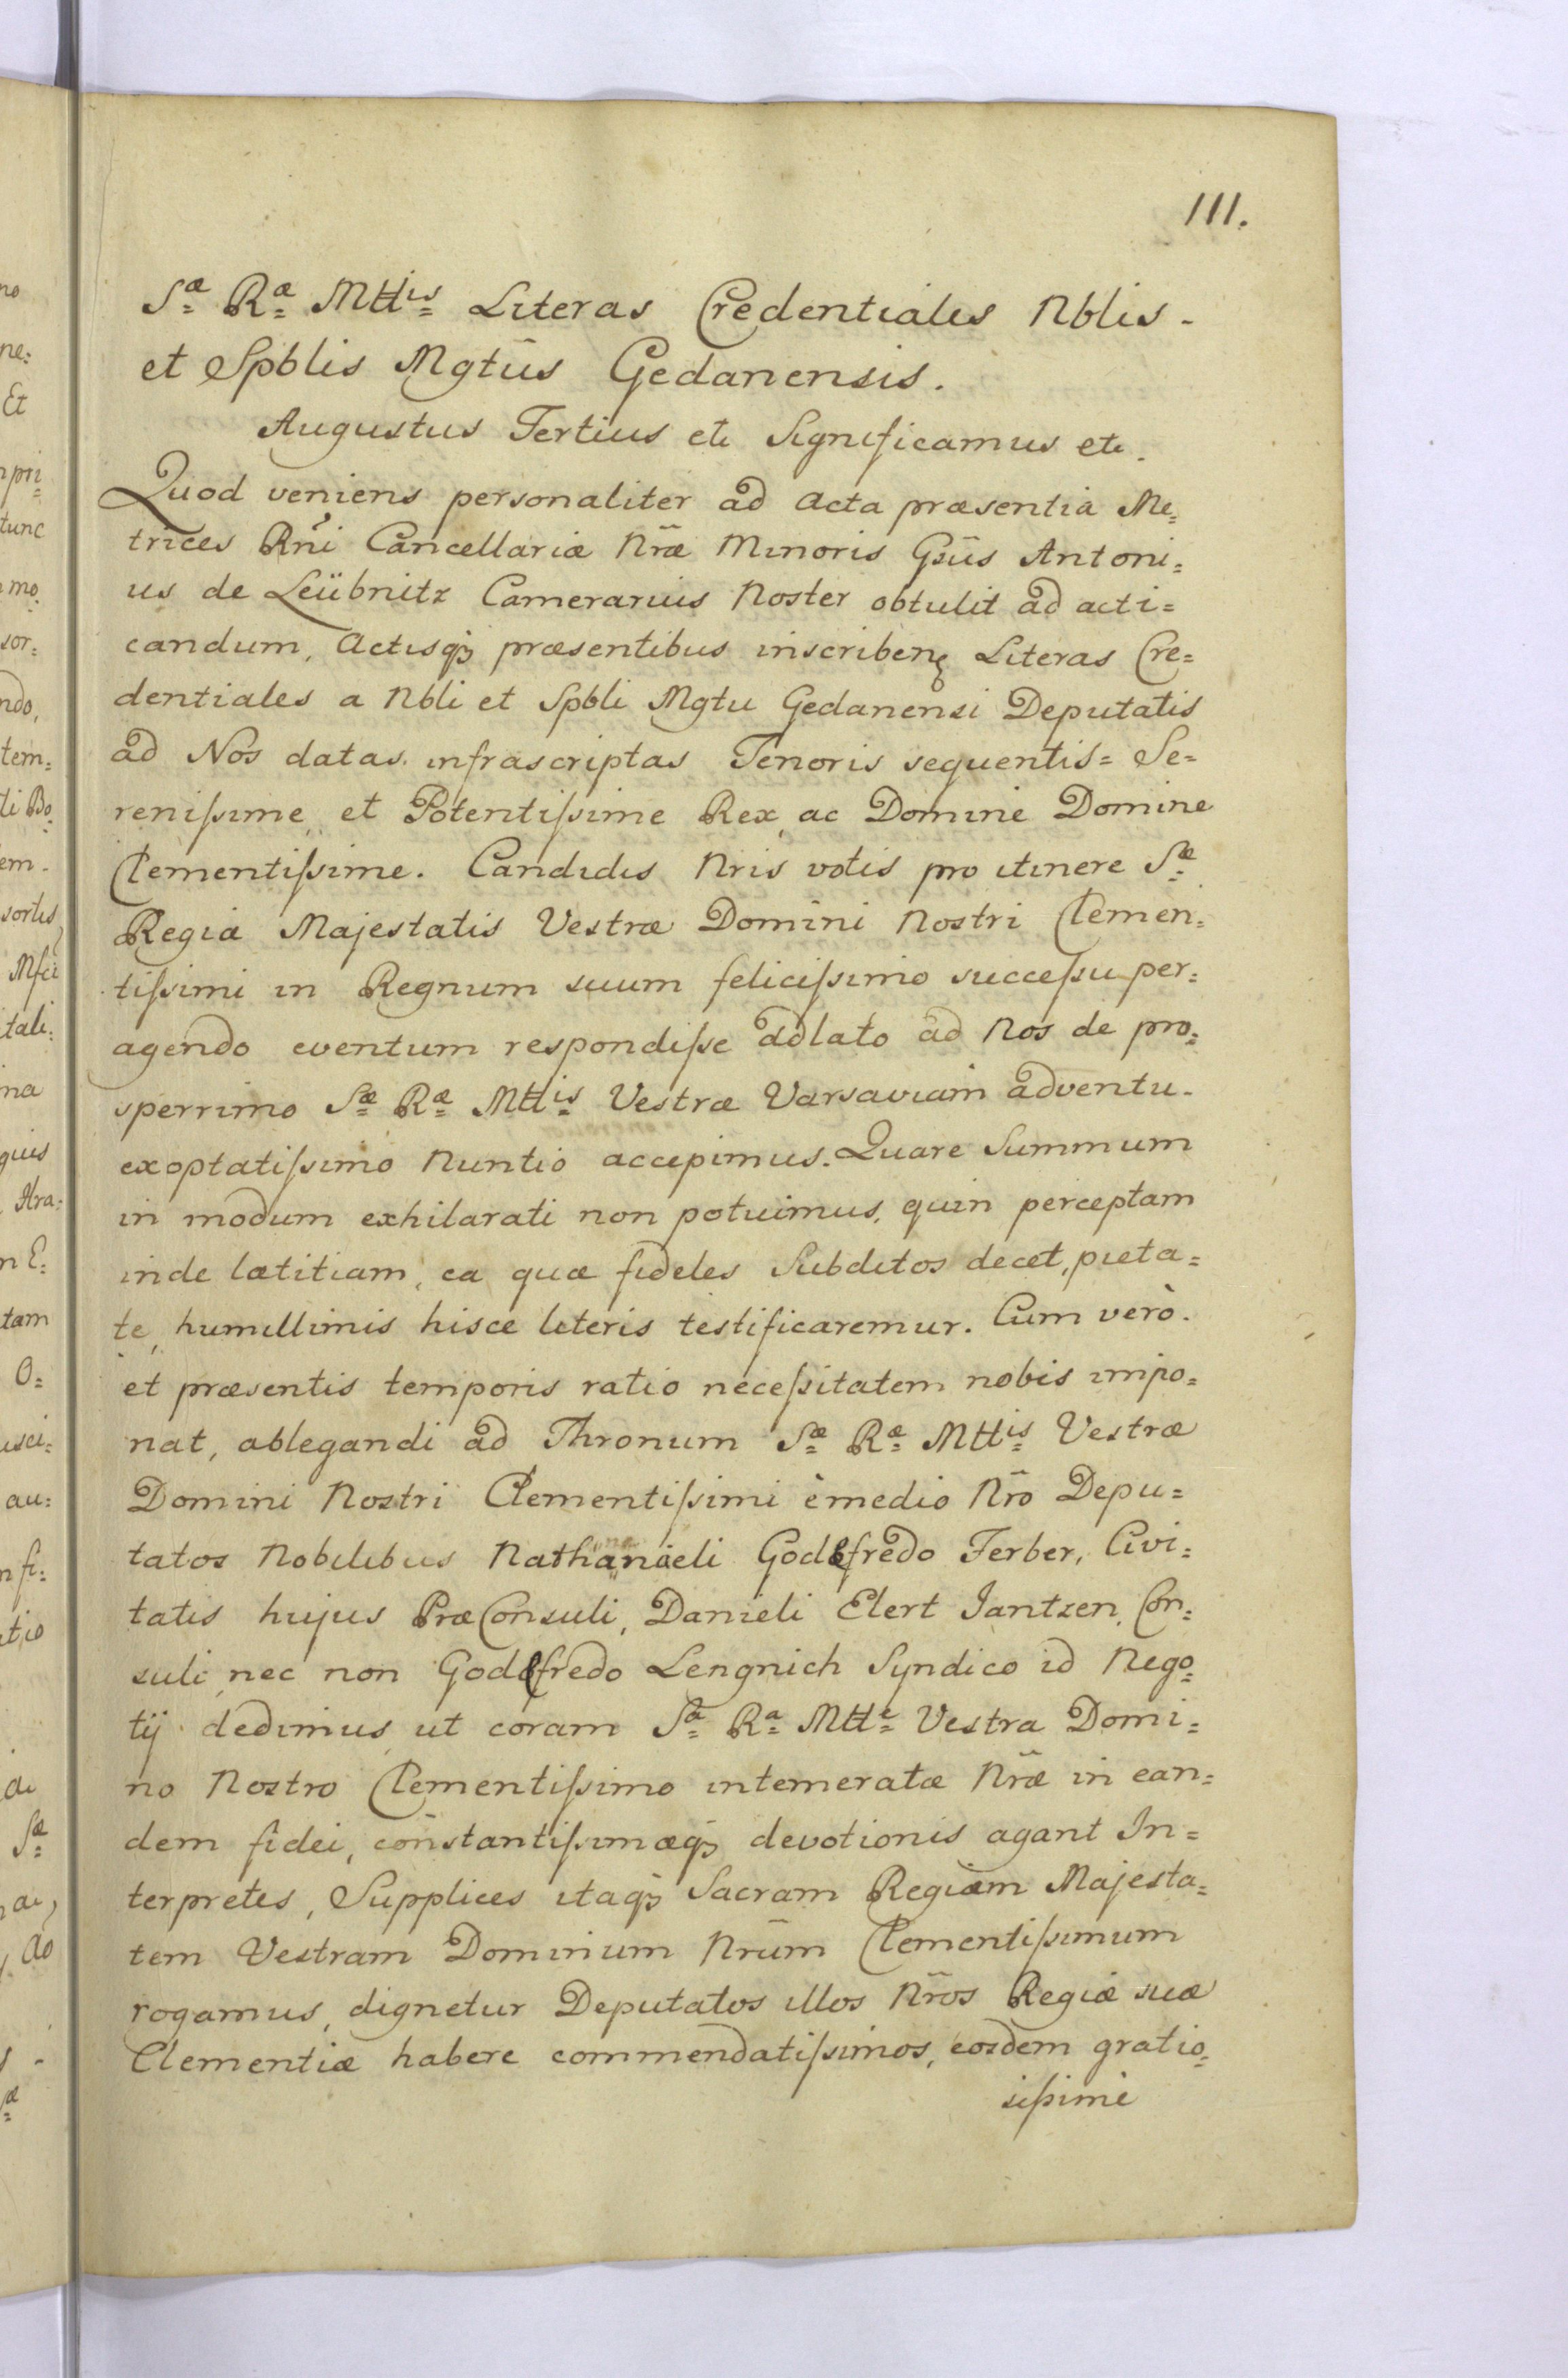 111.
Sæ Ræ Mttis Literas Credentiales Nblis
et Spblis Mgtūs Gedanensis.
Augustus Tertius etc Significamus etc.
Quod veniens personaliter ad Acta præsentia Me=
trices Rni Cancellariæ Nr̃æ Minoris Gsũs Antoni=
us de Leübnitz Camerarius Noster obtulit ad acti=
candum, Actisqꝫ præsentibus inscriben: Literas Cre=
dentiales a Nbli et Spbli Mgtu Gedanensi Deputatis
ad Nos datas infrascriptas Tenoris sequentis= Se=
reniſsime, et Potentiſsime Rex, ac Domine Domine
Clementiſsime. Candidis Nris votis pro itinere Sæ
Regiæ Majestatis Vestræ Domini Nostri Clemen=
tiſsimi in Regnum suum feliciſsimo succeſsu per=
agendo eventum respondiſse adlato ad Nos de pro=
sperrimo Sæ Ræ Mttis Vestræ Varsaviam adventu
exoptatiſsimo Nuntio accepimus. Quare Summum
in modum exhilarati non potuimus, quin perceptam
inde lætitiam, ea quæ fideles Subditos decet, pieta=
te, humillimis hisce literis testificaremur. Cum verò
et præsentis temporis ratio neceſsitatem nobis impo=
nat, ablegandi ad Thronum Sæ Ræ Mttis Vestræ
Domini Nostri Clementiſsimi è medio Nr̃o Depu=
tatos Nobilibus Nathanaeli Godefredo Ferber, Civi=
tatis hujus PræConsuli, Danieli Elert Jantzen, Con=
suli, nec non Godefredo Lengnich Syndico id Nego=
tij dedimus, ut coram Sa Ra Mtte Vestra Domi=
no Nostro Clementiſsimo intemeratæ Nr̃æ in ean=
dem fidei, constantiſsimæqꝫ devotionis agant In=
terpretes, Supplices itaqꝫ Sacram Regiam Majesta=
tem Vestram Dominum Nrũm Clementiſsimum
rogamus, dignetur Deputatos illos Nr̃os Regiæ suæ
Clementiæ habere commendatiſsimos, eosdem gratio=
siſsimè